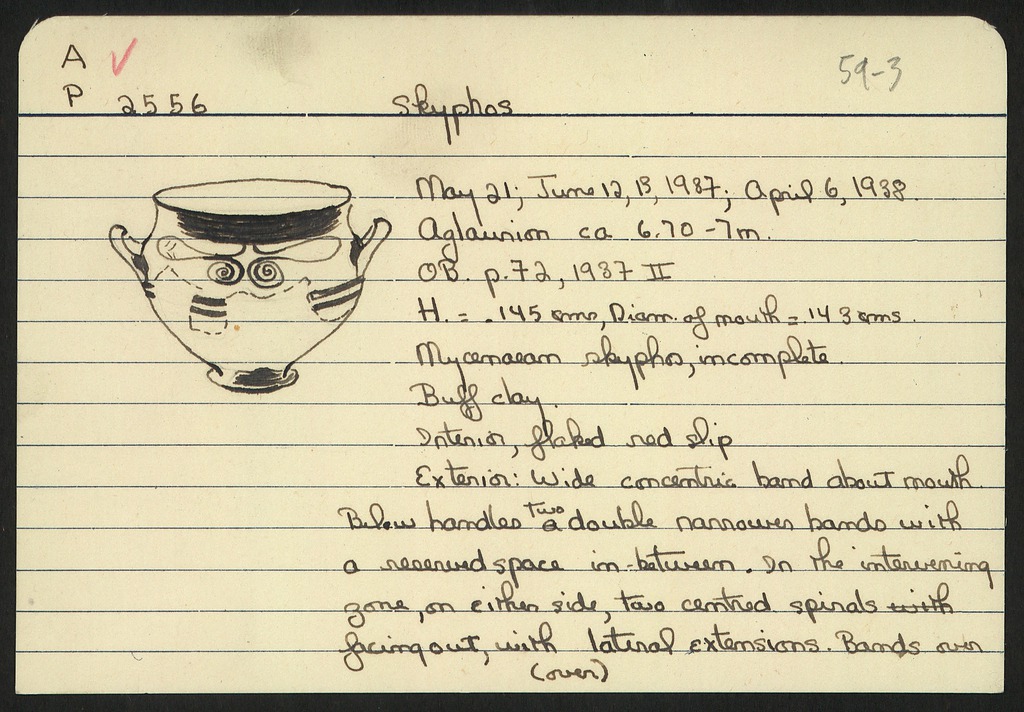 A ✓
59-3
P 2556 Skyphos
May 21; June 12, 13, 1937; April 6, 1938.
Aglaurion ca 6.70-7m.
OB. p. 72, 1937 II
H. = .145 cms, Diam. of mouth = .143 cms.
Mycenaean skyphos, incomplete.
Buff clay.
Interior, flaked red slip
Exterior: Wide concentric band about mouth.
Below handles two a double narrower bands with
a reserved space in-between. In the intervening
zone, on either side, two centred spirals with
facing out, with lateral extensions. Bands over
(over)